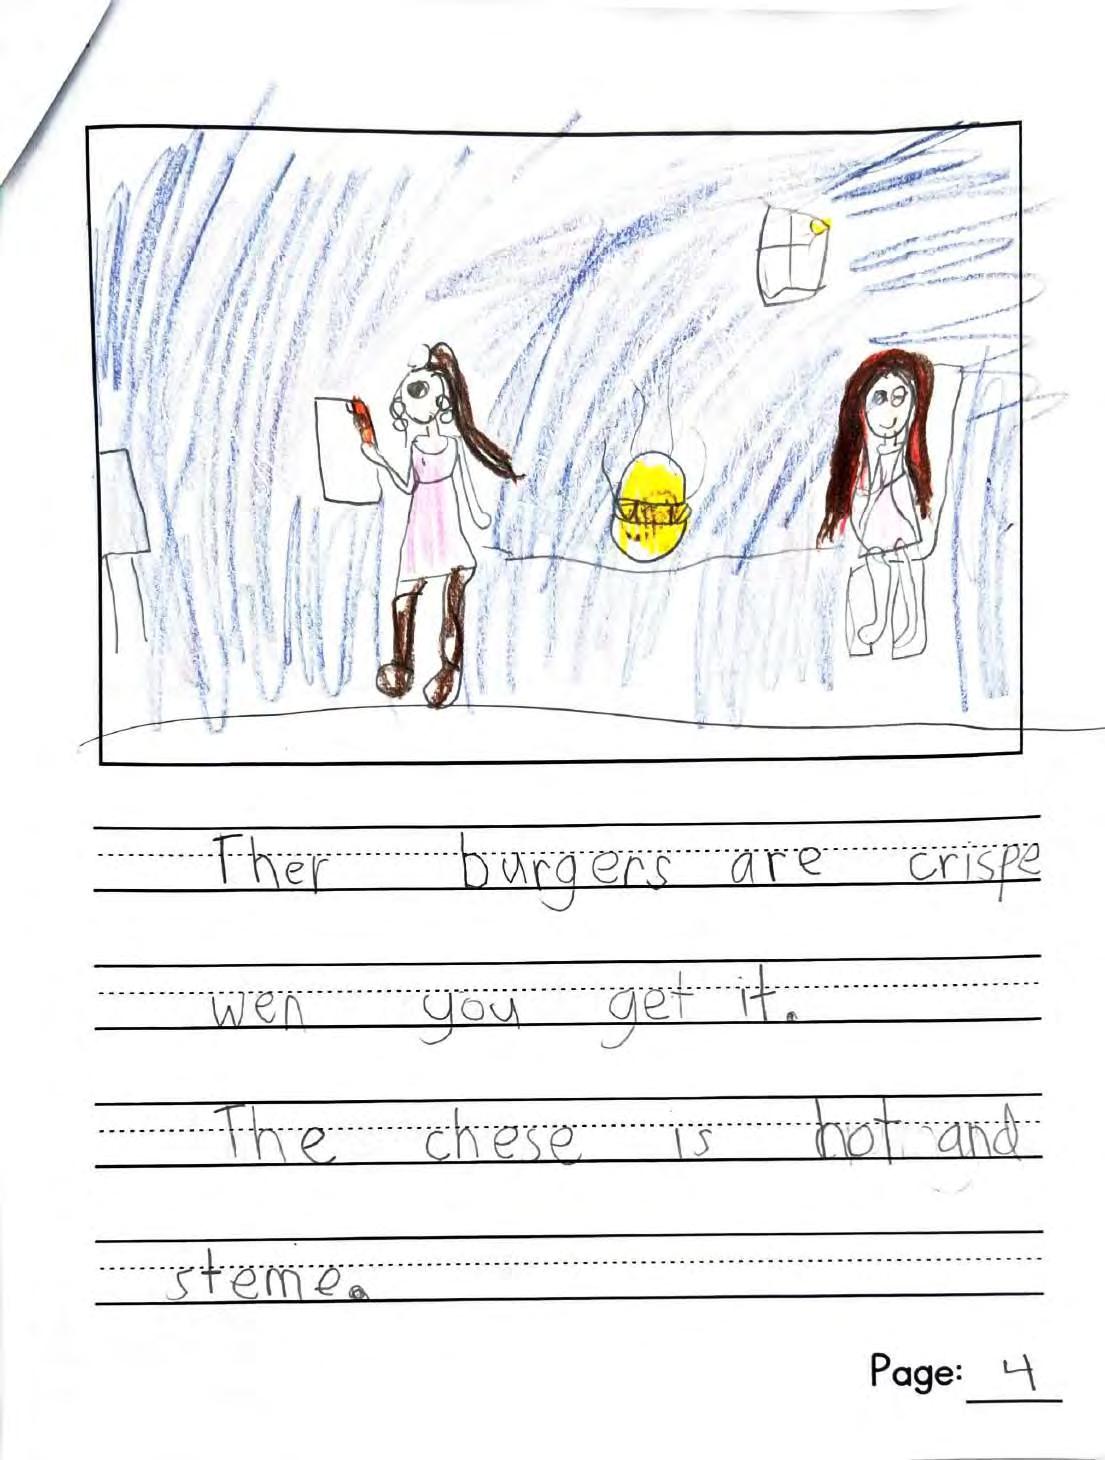 Ther burgers are crispe
wen you get it.
The chese is hot and
steme.
Page: 4